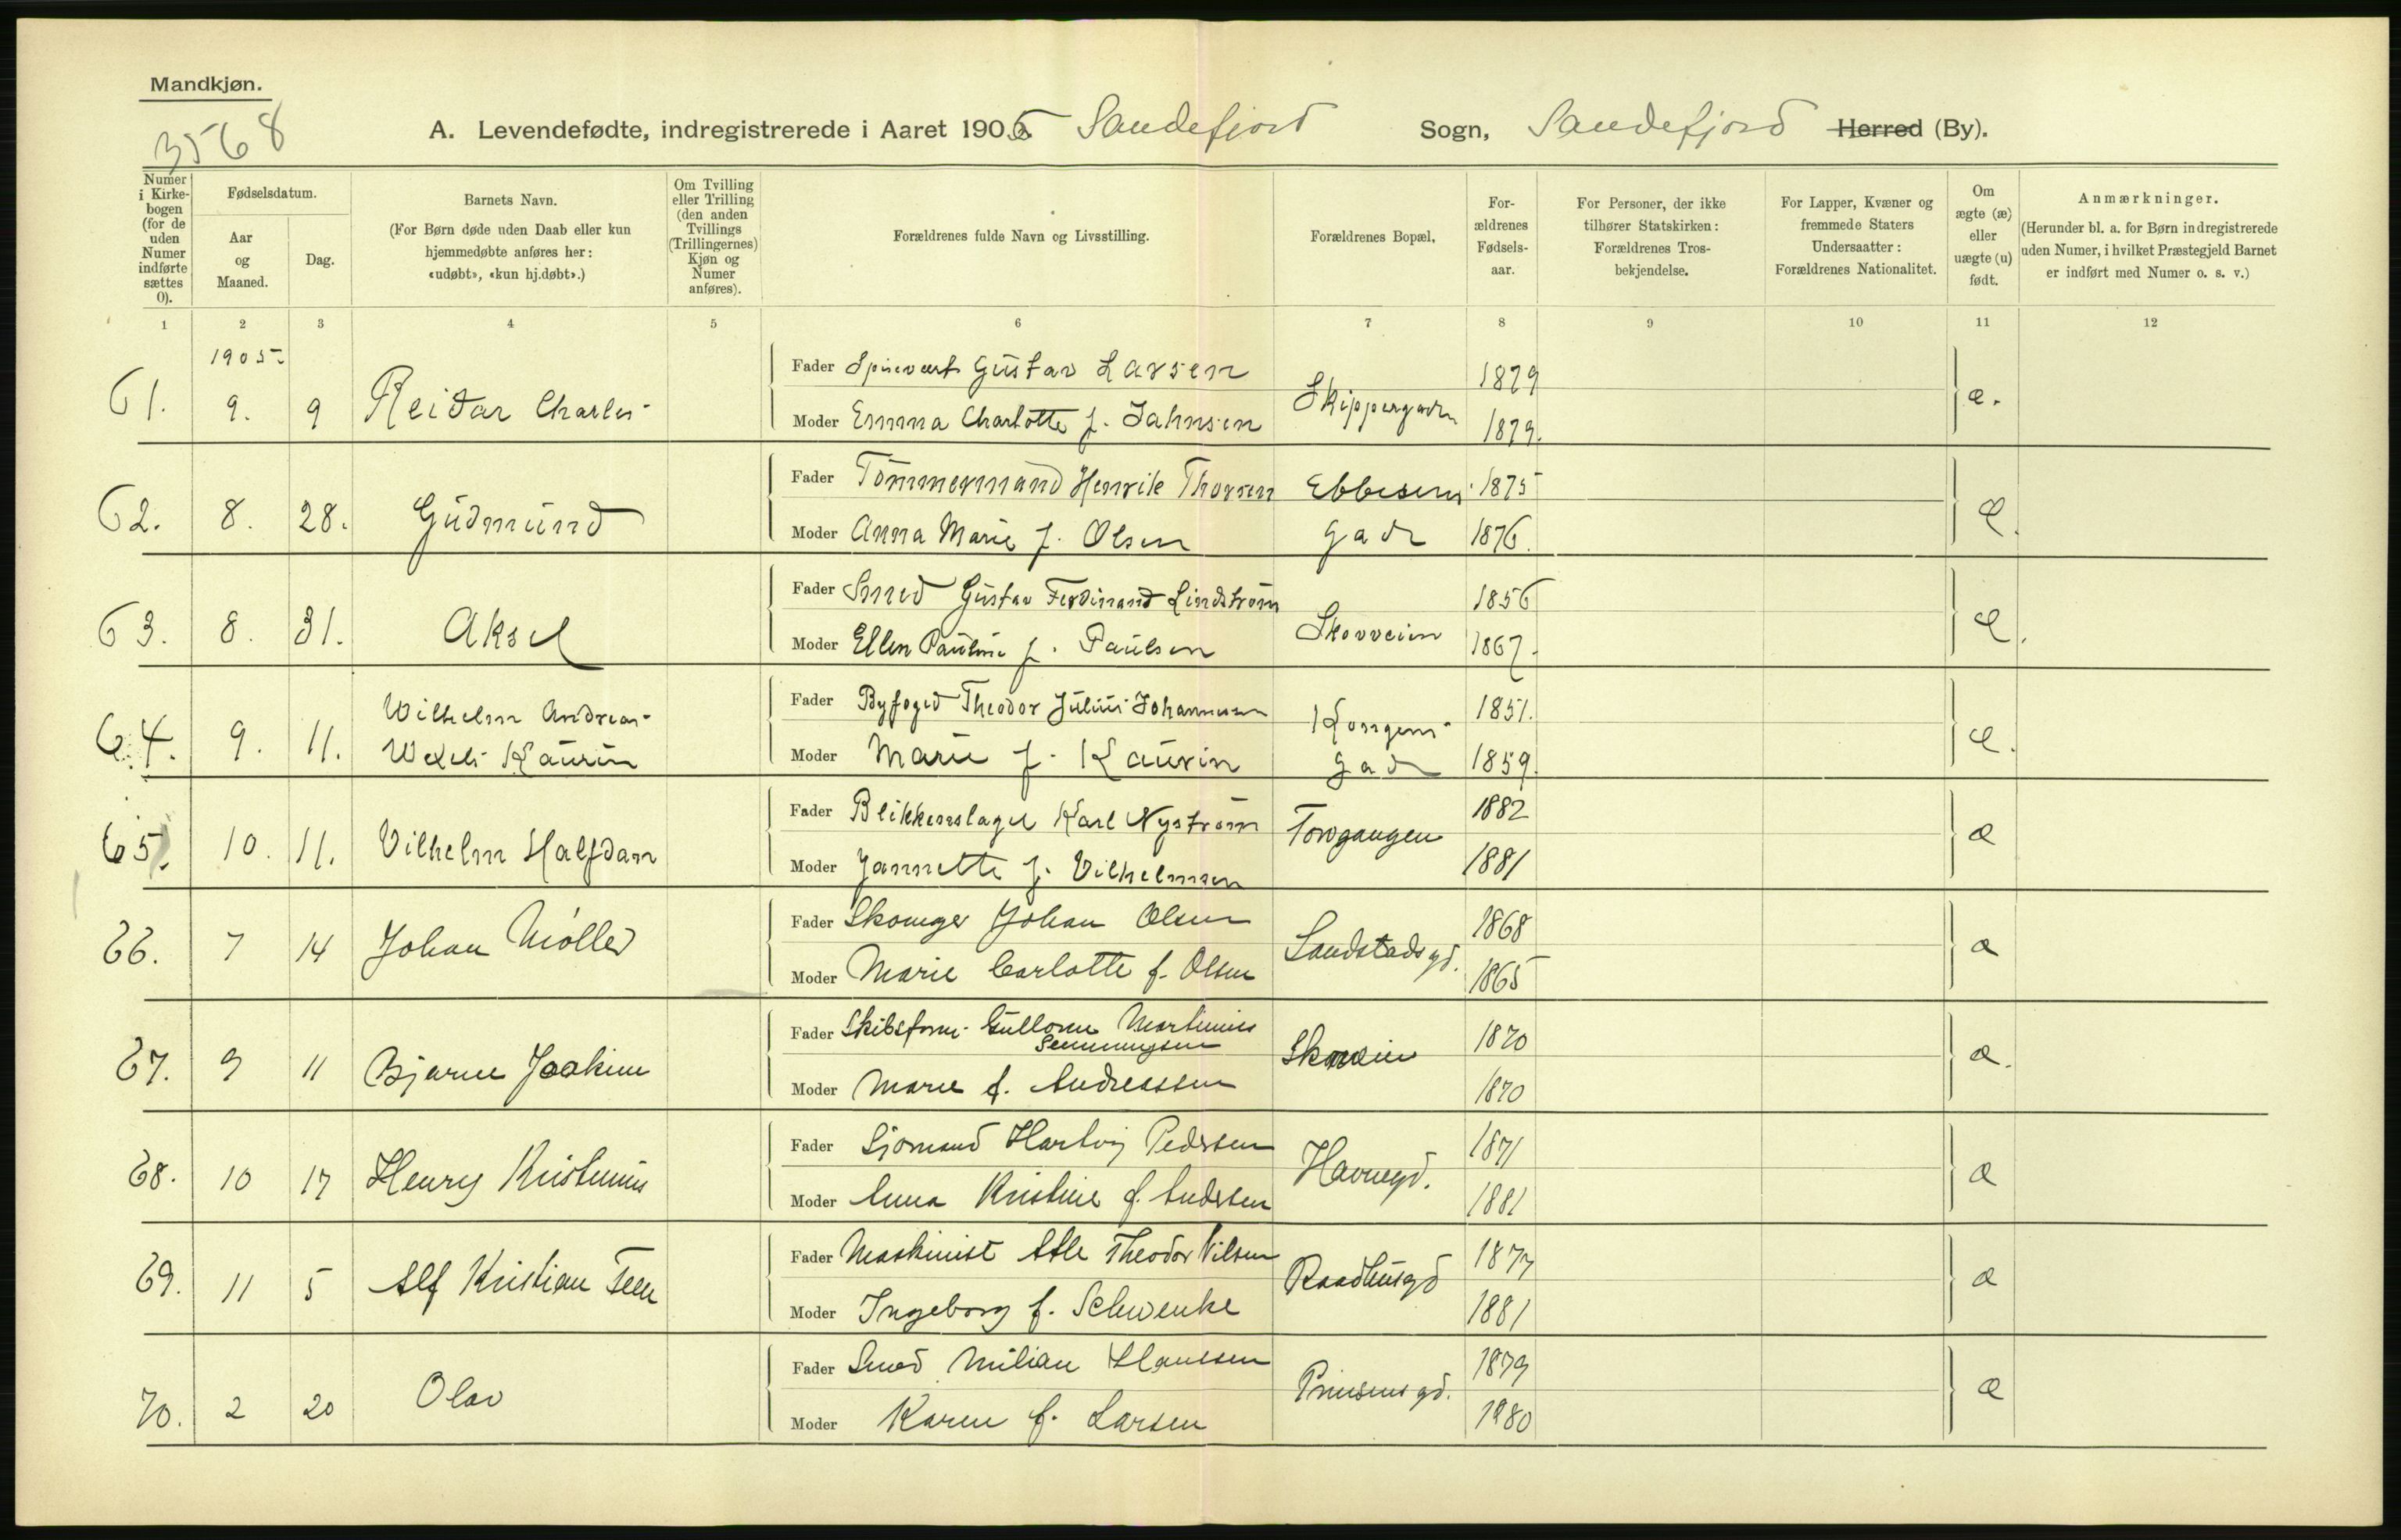 Mandkjøn.
3568
A. Levendefødte, indregistrerede i Aaret 1905. Sandefjord Sogn, Sandefjord Herred (By).
Numer i Kirkebogen (for de uden Numer indførte sættes 0).
Fødselsdatum.
Aar og Maaned.
Dag.
Barnets Navn.
(For Børn døde uden Daab eller kun hjemmedøbte anføres her: «udøbt», «kun hj.døbt».)
Om Tvilling eller Trilling (den anden Tvillings (Trillingernes) Kjøn og Numer anføres).
Forældrenes fulde Navn og Livsstilling.
Forældrenes Bopæl,
Forældrenes Fødselsaar.
For Personer, der ikke tilhører Statskirken: Forældrenes Trosbekjendelse.
For Lapper, Kvæner og fremmede Staters Undersaatter: Forældrenes Nationalitet.
Om ægte (æ) eller uægte (u) født.
Anmærkninger.
(Herunder bl. a. for Børn indregistrerede uden Numer, i hvilket Præstegjeld Barnet er indført med Numer o. s. v.)
1 2 3 4 5 6 7 8 9 10 11 12
1905
61. 9. 9 Reidar Charles
Fader Spisevært Gustav Larsen 1879
Skippergaden æ.
Moder Emma Charlotte f. Jahnsen 1879.
62. 8. 28. Gudmund
Fader Tömmermand Henrik Thorsen Ebbesens 1875
Moder Anna Marie f. Olsen gade 1876. æ.
63. 8. 31. Aksel
Fader Smed Gustav Ferdinand Lindström 1856
Skovveien æ.
Moder Ellen Pauline f. Paulsen 1867.
64. 9. 11. Wilhelm Andreas
Wexels Kaurin
Fader Byfoged Theodor Julius Johannessen Kongens 1851.
Moder Marie f. Kaurin gade 1859. æ.
65. 10. 11. Vilhelm Halfdan
Fader Blikkenslager Karl Nyström 1882
Torvgangen æ
Moder Jannette f. Vilhelmsen 1881
66. 7 14 Johan Møller
Fader Skomager Johan Olsen 1868
Sandstadsgd. æ
Moder Marie Carlotte f. Olsen 1865
67. 9 11 Bjarne Joakim
Fader Skibstøm. Gullorm Martinius
Semmingsen 1870
Skovveien æ.
Moder Marie f. Andreassen 1870
68. 10 17 Henry Kristinius
Fader Sjømand Hartvig Pedersen 1871
Havnegd. æ
Moder Anna Kristine f. Andersen 1881
69. 11 5 Alf Kristian Feen
Fader Maskinist Atle Theodor Nilsen 1877
Raadhusgd æ
Moder Ingeborg f. Schwenke 1881
70. 2 20 Olav
Fader Smed Milian Hanssen 1879
Prinsensgd. æ
Moder Karen f. Larsen 1880